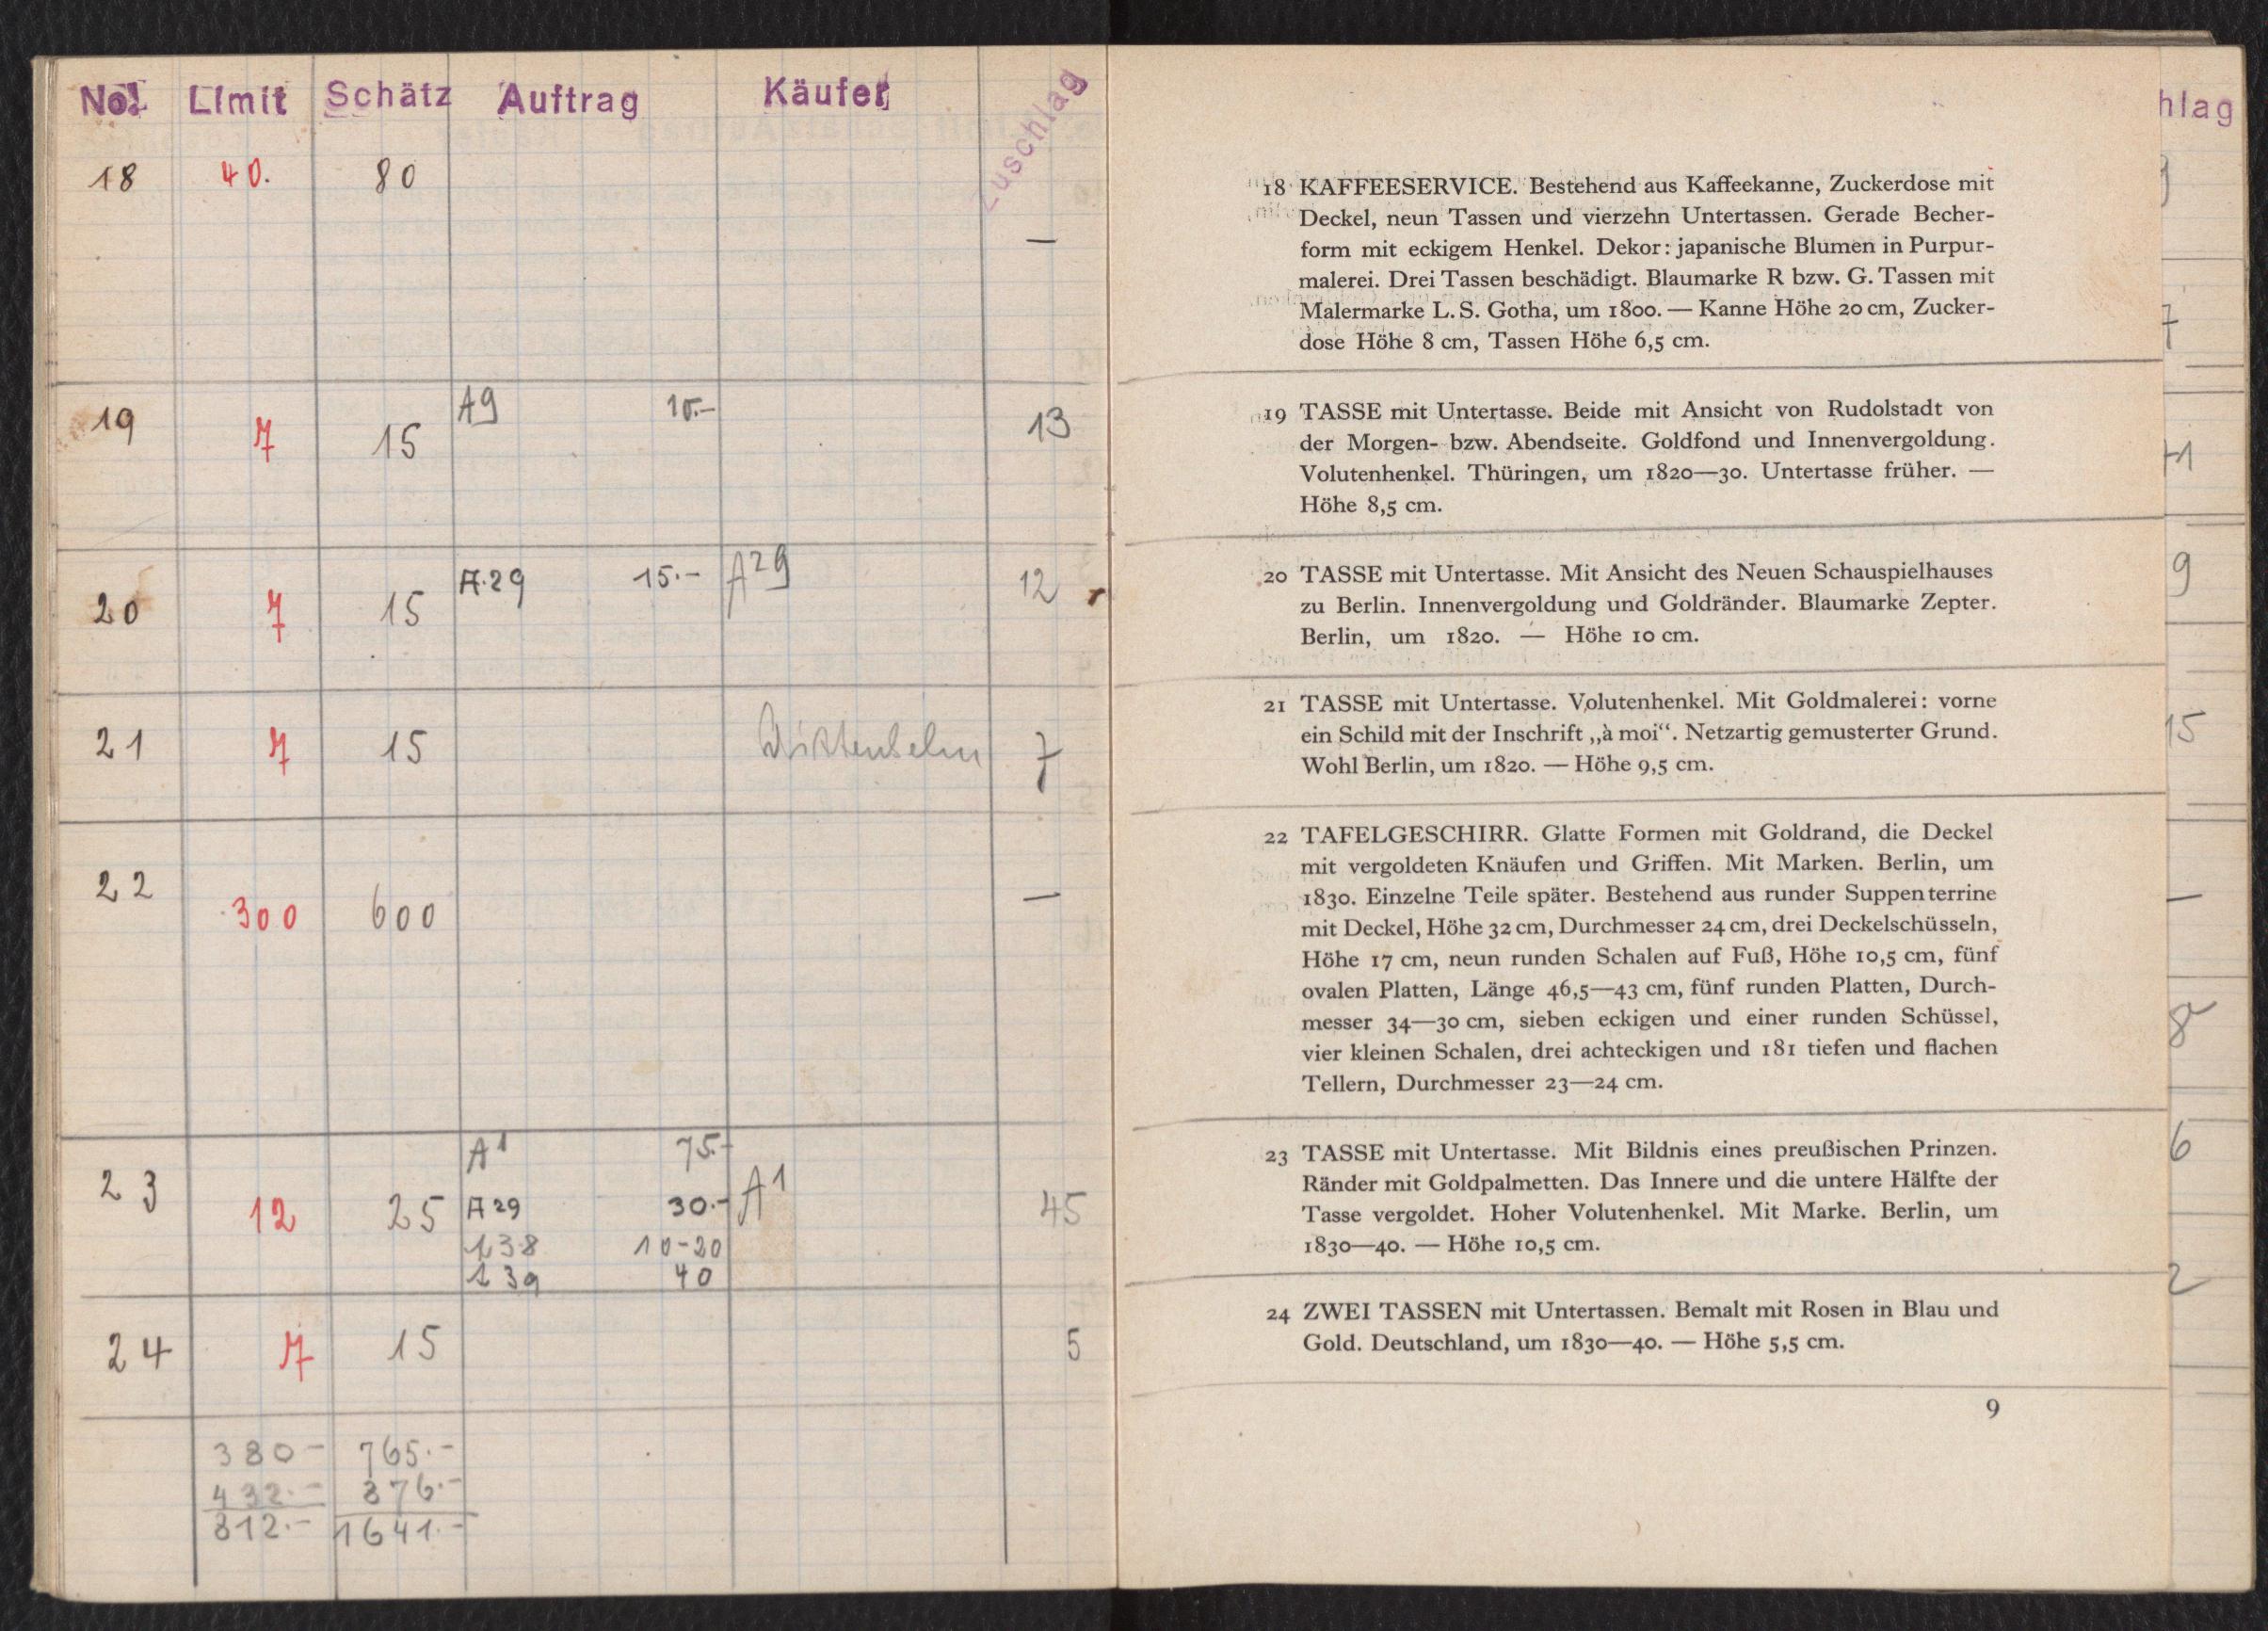 No. Limit Schätz Auftrag Käufer Zuschlag
18 40. 80 —
19 7 15 A9 10.- 13
20 7 15 A.29 15.- A29 12
21 7 15 7
22 300 600 —
23 12 25 A1 75.- A1 45
A29 30.-
138 10-20
139 40
24 7 15 5
380- 765.-
432.- 876.-
812.- 1641.-
18 KAFFEESERVICE. Bestehend aus Kaffeekanne, Zuckerdose mit
Deckel, neun Tassen und vierzehn Untertassen. Gerade Becher-
form mit eckigem Henkel. Dekor: japanische Blumen in Purpur-
malerei. Drei Tassen beschädigt. Blaumarke R bzw. G. Tassen mit
Malermarke L. S. Gotha, um 1800. — Kanne Höhe 20 cm, Zucker-
dose Höhe 8 cm, Tassen Höhe 6,5 cm.
19 TASSE mit Untertasse. Beide mit Ansicht von Rudolstadt von
der Morgen- bzw. Abendseite. Goldfond und Innenvergoldung.
Volutenhenkel. Thüringen, um 1820—30. Untertasse früher. —
Höhe 8,5 cm.
20 TASSE mit Untertasse. Mit Ansicht des Neuen Schauspielhauses
zu Berlin. Innenvergoldung und Goldränder. Blaumarke Zepter.
Berlin, um 1820. — Höhe 10 cm.
21 TASSE mit Untertasse. Volutenhenkel. Mit Goldmalerei: vorne
ein Schild mit der Inschrift „à moi“. Netzartig gemusterter Grund.
Wohl Berlin, um 1820. — Höhe 9,5 cm.
22 TAFELGESCHIRR. Glatte Formen mit Goldrand, die Deckel
mit vergoldeten Knäufen und Griffen. Mit Marken. Berlin, um
1830. Einzelne Teile später. Bestehend aus runder Suppenterrine
mit Deckel, Höhe 32 cm, Durchmesser 24 cm, drei Deckelschüsseln,
Höhe 17 cm, neun runden Schalen auf Fuß, Höhe 10,5 cm, fünf
ovalen Platten, Länge 46,5—43 cm, fünf runden Platten, Durch-
messer 34—30 cm, sieben eckigen und einer runden Schüssel,
vier kleinen Schalen, drei achteckigen und 181 tiefen und flachen
Tellern, Durchmesser 23—24 cm.
23 TASSE mit Untertasse. Mit Bildnis eines preußischen Prinzen.
Ränder mit Goldpalmetten. Das Innere und die untere Hälfte der
Tasse vergoldet. Hoher Volutenhenkel. Mit Marke. Berlin, um
1830—40. — Höhe 10,5 cm.
24 ZWEI TASSEN mit Untertassen. Bemalt mit Rosen in Blau und
Gold. Deutschland, um 1830—40. — Höhe 5,5 cm.
9
hlag
7
9
15
—
8
6
2